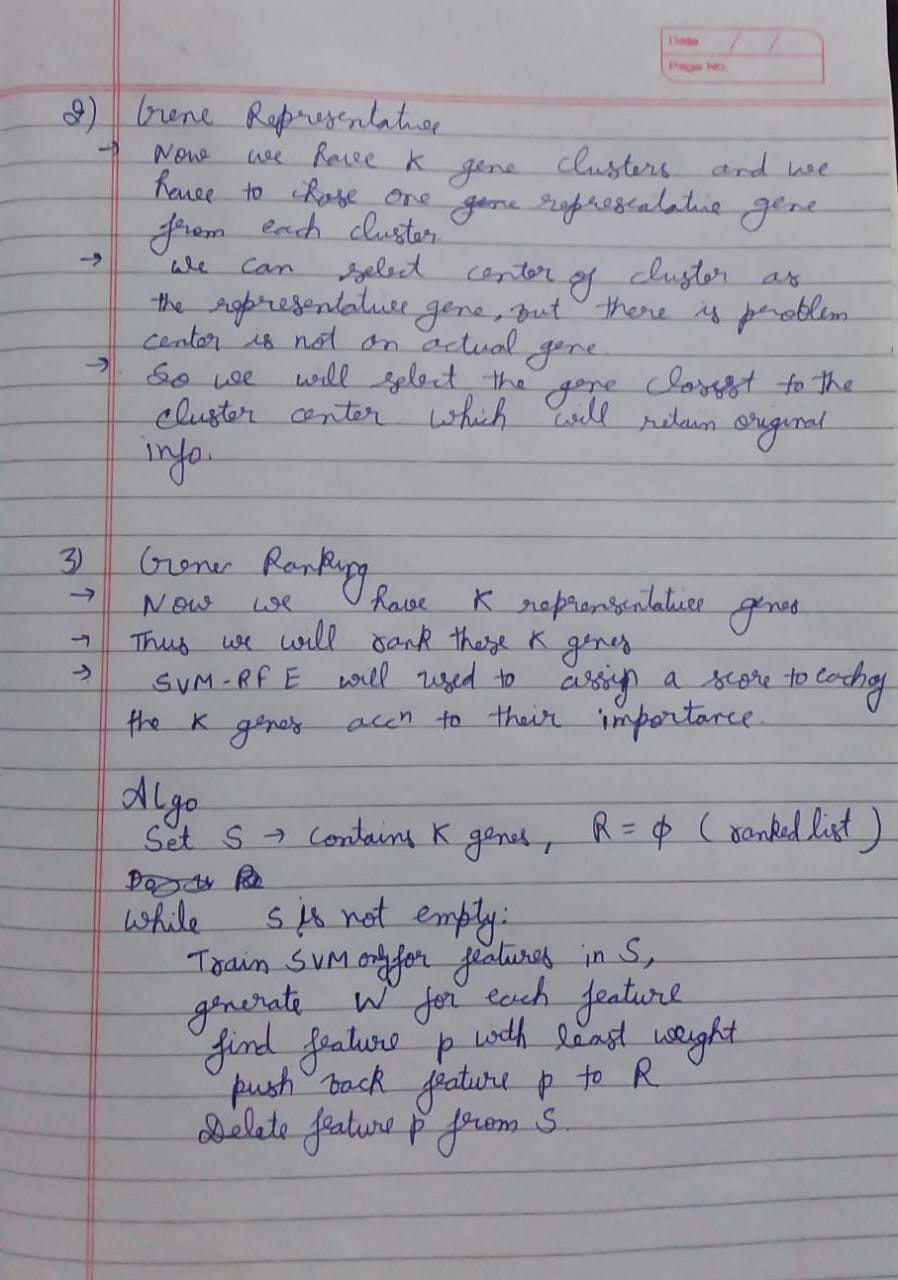 Date / /
Page No.
2) Gene Representative
→ Now we have K gene clusters and we
have to chose one gene represealative gene
from each cluster
→ We can select center of cluster as
the representative gene, but there is problem
center is not an actual gene
→ So we will select the gene closest to the
cluster center which will retain original
info.
3) Gene Ranking
→ Now we have K reprensentative genes
→ Thus we will rank these K genes
→ SVM-RFE will used to assign a score to each of
the K genes accn to their importance.
Algo
Set S → contains K genes, R = ϕ (ranked list)
While S is not empty:
Train SVM only for features in S,
generate W for each feature
find feature p with least weight
push back feature p to R
Delete feature p from S.